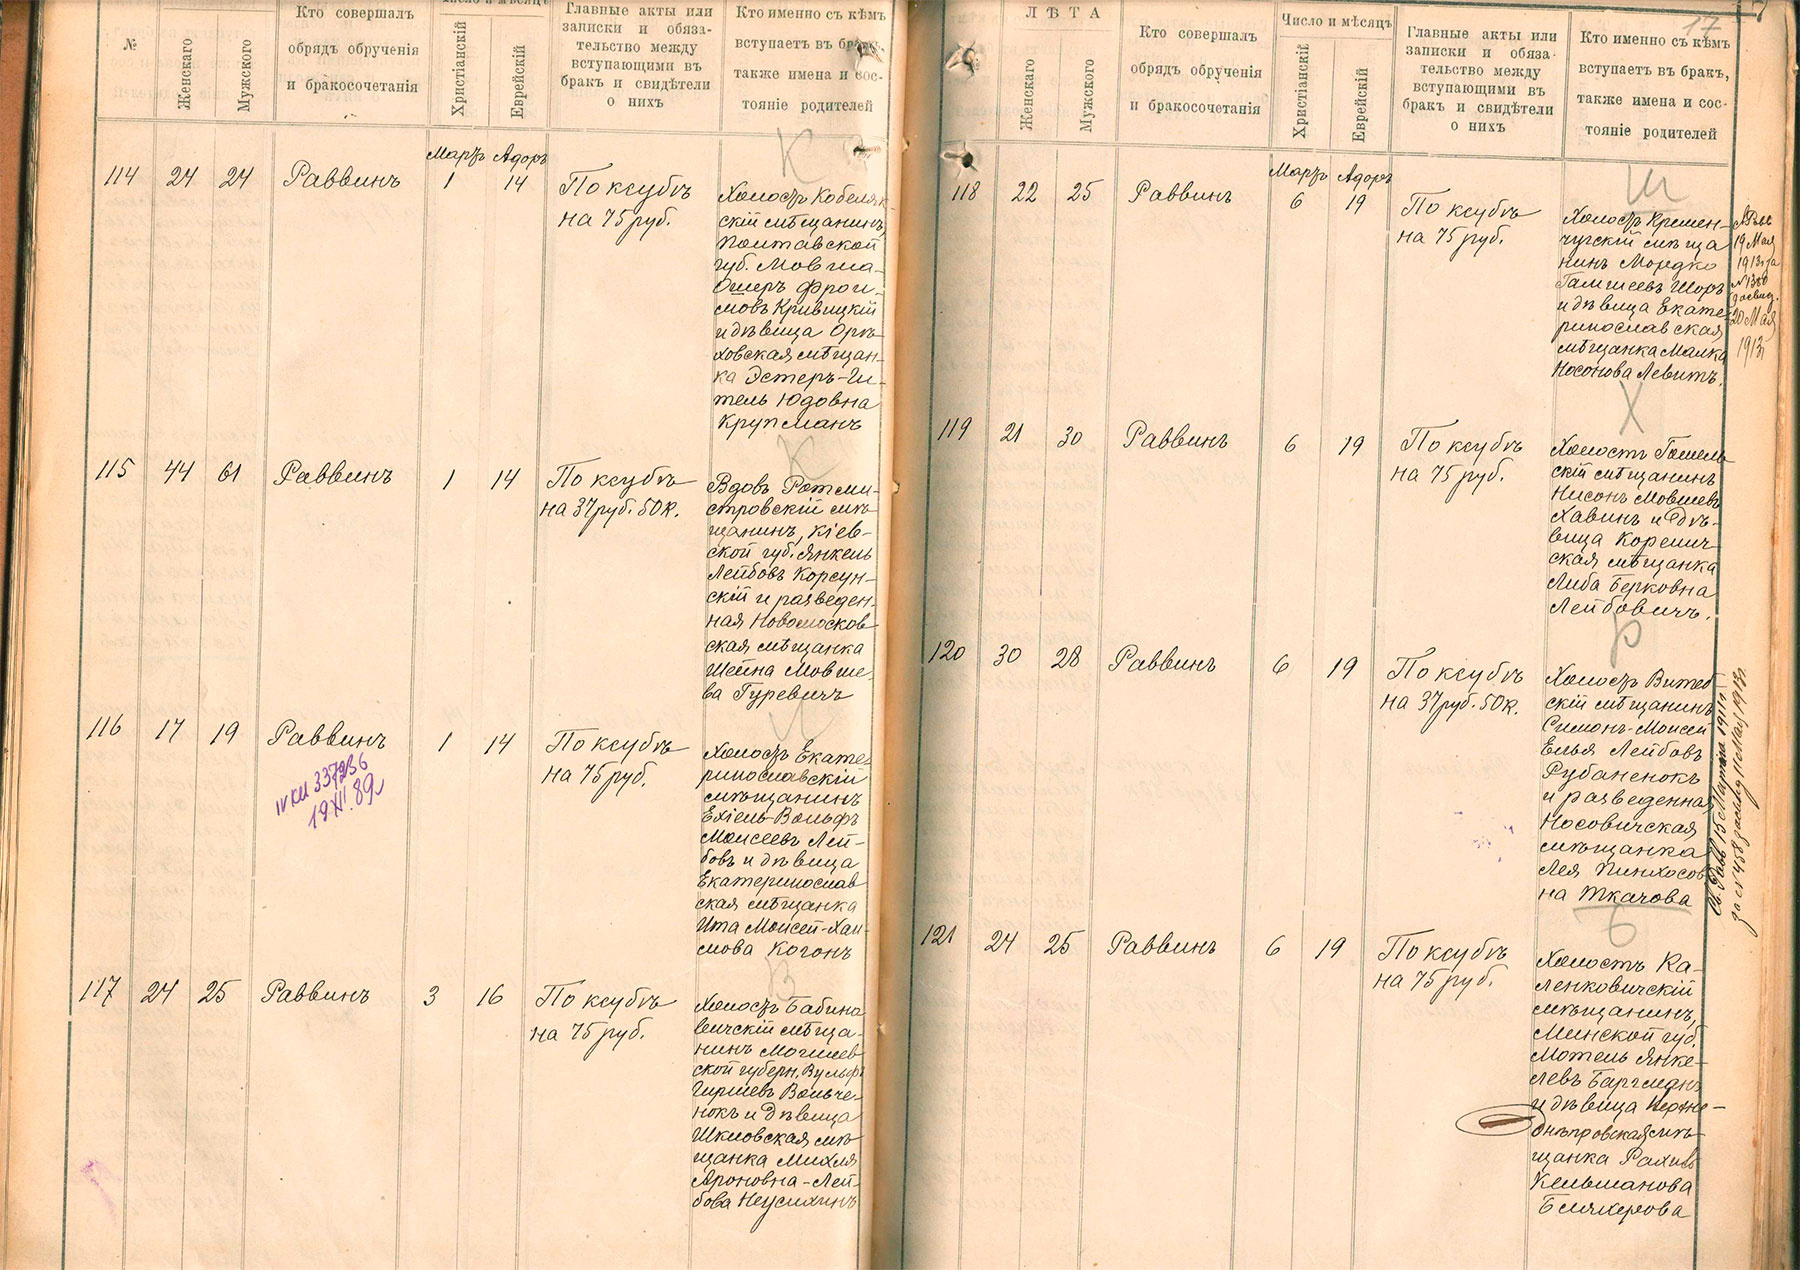 Число и мѣсяцъ
№
Женскаго
Мужского
Кто совершалъ
обрядъ обрученія
и бракосочетанія
Христіанскій
Еврейскій
Главные акты или
записки и обяза-
тельство между
вступающими въ
бракъ и свидѣтели
о нихъ
Кто именно съ кѣмъ
вступаетъ въ бракъ,
также имена и сос-
тояніе родителей
К
114 24 24 Раввинъ Мартъ Адоръ
1 14
По ксубѣ
на 75 руб.
Холостъ Кобеляк-
скій мѣщанинъ,
Полтавской
губ. Мовша-
Ошеръ Фрои-
мовъ Кривицкій
и дѣвица Орѣ-
ховская мѣщан-
ка Эстеръ-Ги-
тель Юдовна
Крупманъ
К
115 44 61 Раввинъ 1 14
По ксубѣ
на 37 руб. 50 к.
Вдовъ Ротми-
стровскій мѣ-
щанинъ, Кіев-
ской губ. Янкель
Лейбовъ Корсун-
скій и разведен-
ная Новомосков-
ская мѣщанка
Шейна Мовше-
ва Гуревичъ
116 17 19 Раввинъ 1 14
По ксубѣ
на 75 руб.
IV КИ 337236
19 XII. 89
Холостъ Екате-
ринославскій
мѣщанинъ
Ехіель-Вольфъ
Моисеевъ Лей-
бовъ и дѣвица
Екатеринослав
ская мѣщанка
Ита Моисей-Хаи-
мова Когонъ
В
117 24 25 Раввинъ 3 16
По ксубѣ
на 75 руб.
Холостъ Бабино
вичскій мѣща-
нинъ Могилев
ской губерн. Вульфъ
Гиршевъ Вольче-
нокъ и дѣвица
Шкловская мѣ-
щанка Михля
Ароновна-Лей-
бова Неусихинъ
17
ЛѢТА
Женскаго
Мужского
Кто совершалъ
обрядъ обрученія
и бракосочетанія
Число и мѣсяцъ
Христіанскій
Еврейскій
Главные акты или
записки и обяза-
тельство между
вступающими въ
бракъ и свидѣтели
о нихъ
Кто именно съ кѣмъ
вступаетъ въ бракъ,
также имена и сос-
тояніе родителей
Ш
118 22 25 Раввинъ Мартъ Адоръ
6 19
По ксубѣ
на 75 руб.
Холостъ Кремен-
чугскій мѣща
нинъ Мордко
Гамшеевъ Шоръ
и дѣвица Екате-
ринославская
мѣщанка Малка
Носонова Левитъ.
19 Мая
1913 за
№ 1380
20 Мая
1913
Х
119 21 30 Раввинъ 6 19
По ксубѣ
на 75 руб.
Холостъ Гомель
скій мѣщанинъ
Нисонъ Мовшевъ
Хавинъ и дѣ-
вица Корелич-
ская мѣщанка
Либа Берковна
Лейбовичъ.
Р
120 30 28 Раввинъ 6 19
По ксубѣ
на 37 руб. 50 к.
Холостъ Витеб
скій мѣщанинъ
Симонъ-Моисей
Елья Лейбовъ
Рубаненокъ
и разведенная
Носовичская
мѣщанка
Лея Пинхосов
на Ткачова
15 Марта 1911 г.
за № 458 11 Мая 1913 г.
Б
121 24 25 Раввинъ 6 19
По ксубѣ
на 75 руб.
Холостъ Ка-
ленковичскій
мѣщанинъ,
Минской губ.
Мотель Янке-
левъ Баргманъ
и дѣвица Верхне-
днѣпровская мѣ-
щанка Рахиль
Кельманова